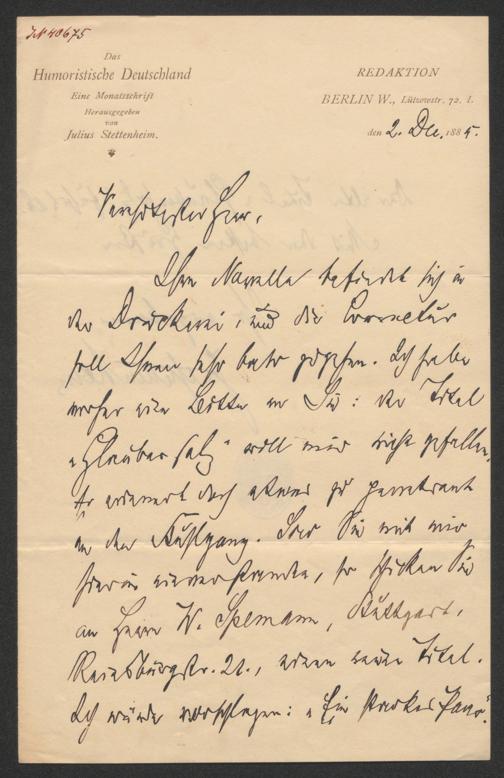 JN 40675
Das
Humoristische Deutschland
Eine Monatsschrift
Herausgegeben
von
Julius Stettenheim.
REDAKTION
BERLIN W., Lützowstr. 72. I.
den 2. Dec. 1885.
Verehrtester Herr,
Ihre Novelle befindet sich in
der Druckerei, und die Correctur
soll Ihnen sehr bald zugehen. Ich habe
vorher eine Bitte an Sie: der Titel
„Glaubersalz" will mir nicht gefallen.
Er erinnert doch etwas zu penetrant
an den Stuhlgang. Sind Sie mit mir
hierin einverstanden, so schicken Sie
an Herrn W. Spemann, Stuttgart,
Reinsburgstr. 21., einen neuen Titel.
Ich würde vorschlagen: „Ein starkes